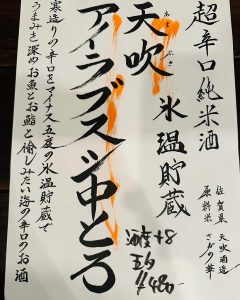 超辛口純米酒
佐賀県 天吹酒造
原料米 さがの華
あまぶき
天吹 氷温貯蔵
アイラブスシ中とろ
酒度+8
五勺
¥480-
寒造りの辛口をマイナス五度の氷温貯蔵で
うまみを深めお魚とお鮨と愉しみたい海の辛口のお酒